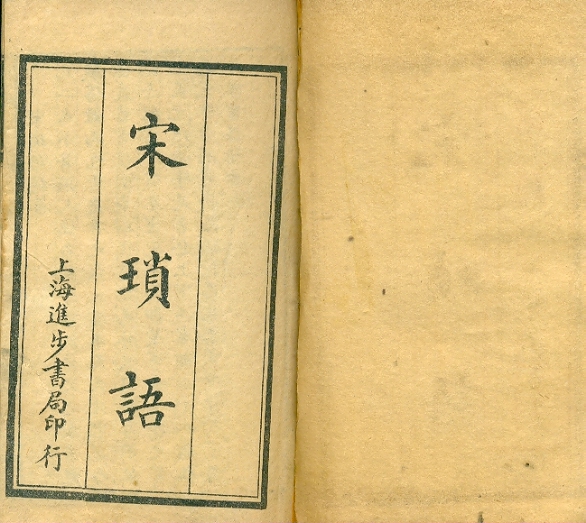 宋瑣語
上海進步書局印行